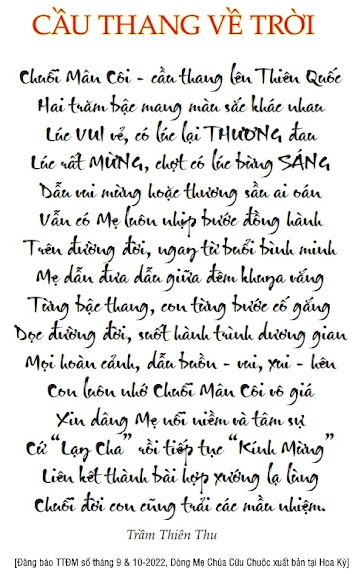 CẦU THANG VỀ TRỜI
Chuỗi Mân Côi - cầu thang lên Thiên Quốc
Hai trăm bậc mang màu sắc khác nhau
Lúc VUI vẻ, có lúc lại THƯƠNG đau
Lúc rất MỪNG, chợt có lúc bừng SÁNG
Dẫu vui mừng hoặc thương sầu ai oán
Vẫn có Mẹ luôn nhịp bước đồng hành
Trên đường đời, ngay từ buổi bình minh
Mẹ dẫn đưa dẫu giữa đêm khuya vắng
Từng bậc thang, con từng bước cố gắng
Dọc đường đời, suốt hành trình dương gian
Mọi hoàn cảnh, dẫu buồn - vui, xui - hên
Con luôn nhớ Chuỗi Mân Côi vô giá
Xin dâng Mẹ nỗi niềm và tâm sự
Cứ “Lạy Cha” rồi tiếp tục “Kính Mừng”
Liên kết thành bài hợp xướng lạ lùng
Chuỗi đời con cũng trải các mầu nhiệm.
Trầm Thiên Thu
[Đăng báo TTĐM số tháng 9 & 10-2022, Dòng Mẹ Chúa Cứu Chuộc xuất bản tại Hoa Kỳ]